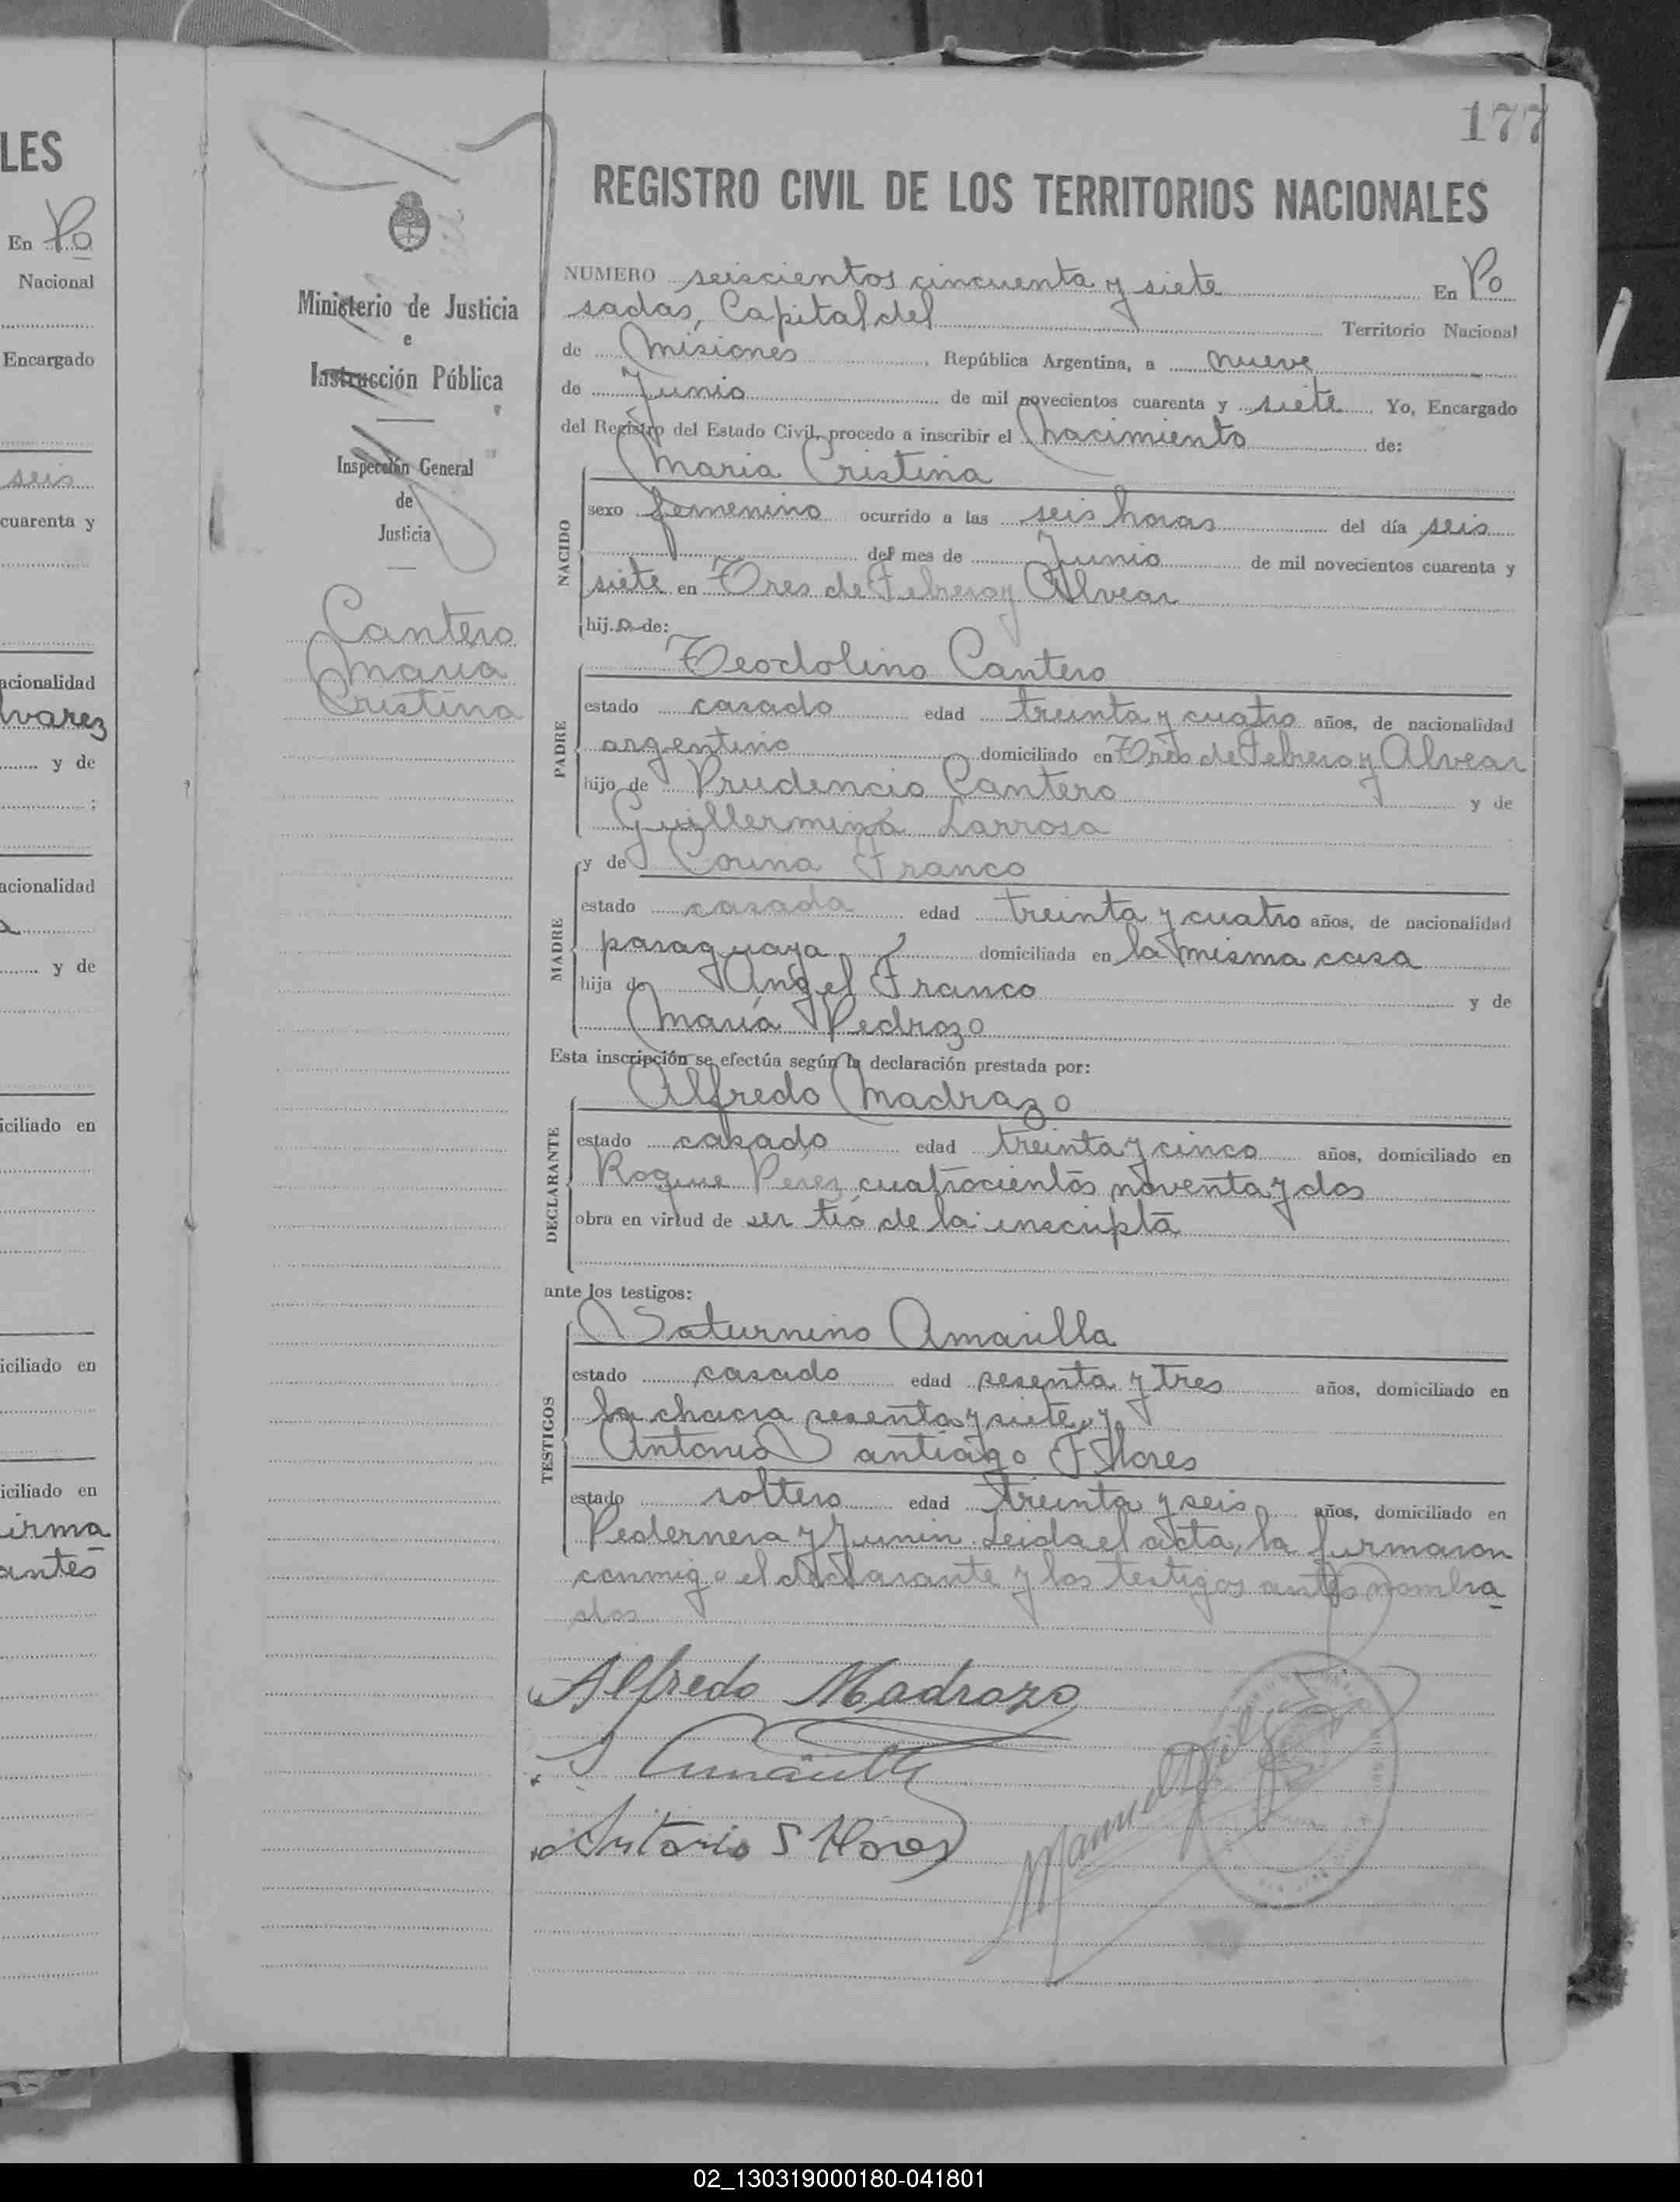 LES
En Po
Nacional
Encargado
seis
cuarenta y
acionalidad
lvarez
y de
;
acionalidad
a
y de
iciliado en
iciliado en
iciliado en
irma
antes
177
Ministerio de Justicia
e
Instrucción Pública
Inspección General
de
Justicia
Cantero
Maria
Cristina
REGISTRO CIVIL DE LOS TERRITORIOS NACIONALES
NUMERO seiscientos cincuenta y siete En Po
sadas, Capital del Territorio Nacional
de Misiones, República Argentina, a nueve
de Junio de mil novecientos cuarenta y siete Yo, Encargado
del Registro del Estado Civil, procedo a inscribir el nacimiento de:
NACIDO
Maria Cristina
sexo femenino ocurrido a las seis horas del día seis
del mes de Junio de mil novecientos cuarenta y
siete en Tres de Febrero y Alvear
hij.a de:
PADRE
Teodolino Cantero
estado casado edad treinta y cuatro años, de nacionalidad
argentino domiciliado en Tres de Febrero y Alvear
hijo de Prudencio Cantero y de
Guillermina Larrosa
MADRE
y de Franco
estado casada edad treinta y cuatro años, de nacionalidad
paraguaya domiciliada en la misma casa
hija de Angel Franco y de
María Pedrozo
Esta inscripción se efectúa según la declaración prestada por:
DECLARANTE
Alfredo Madrazo
estado casado edad treinta y cinco años, domiciliado en
Roque Perez cuatrocientos noventa y dos
obra en virtud de ser tío de la inscripta
ante los testigos:
TESTIGOS
Saturnino Amarilla
estado casado edad sesenta y tres años, domiciliado en
la chacra sesenta y siete y
Antonio Santiago Flores
estado soltero edad treinta y seis años, domiciliado en
Pedernera y Junin. Leida el acta, la firmaron
conmigo el declarante y los testigos antes nombra
dos
Alfredo Madrazo
S Amarilla
Antonio S Flores
Manuel
02_130319000180-041801